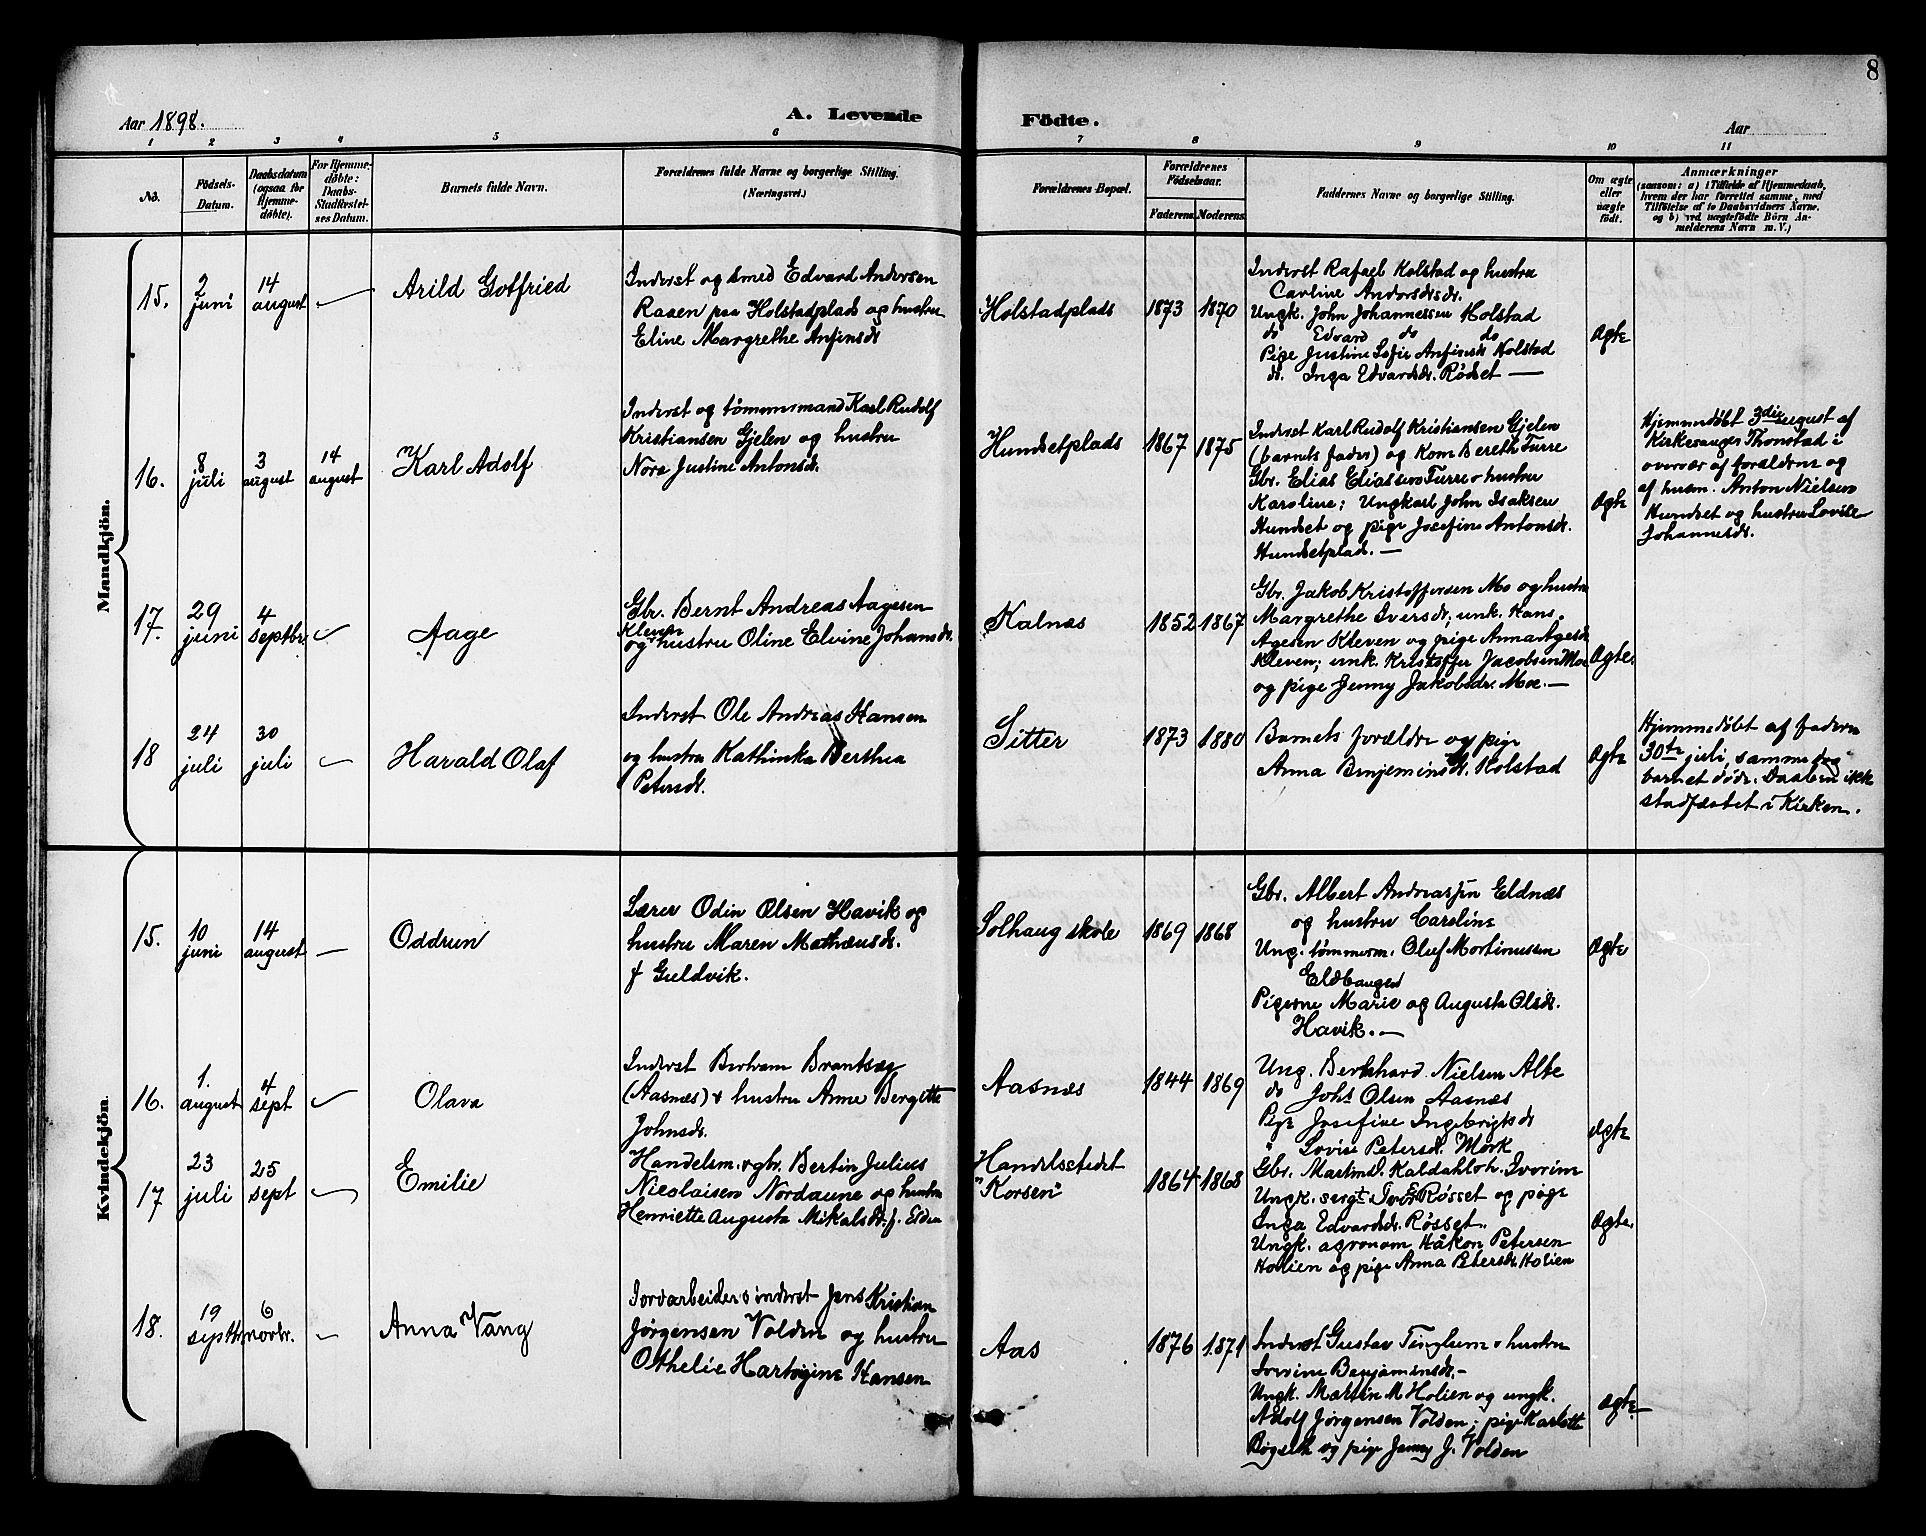 8
Aar 1898.
A. Levende Födte.
Aar
1 2 3 4 5 6 7 8 9 10 11
No.
Födsels-
Datum.
Daabsdatum
(ogsaa for
Hjemme-
döbte).
For Hjemme-
döbte:
Daabs-
Stadfæstel-
ses Datum.
Barnets fulde Navn.
Forældrenes fulde Navne og borgerlige Stilling.
(Næringsvei.)
Forældrenes Bopæl.
Forældrenes
Födselsaar.
Faderens. Moderens.
Faddernes Navne og borgerlige Stilling.
Om ægte
eller
uægte
födt.
Anmærkninger
(saasom: a) i Tilfælde af Hjemmedaab,
hvem der har forrettet samme, med
Tilföielse af to Daabsvidners Navne,
og b) ved uægtefödte Börn An-
melderens Navn m. V.)
Mandkjön.
15.
2
juni
14
august
Arild Gotfried
Inderst og smed Edvard Andersen
Raaen paa Holstadplads og hustru
Eline Margrethe Anfinsdr
Holstadplads
1873 1870
Inderst Rafael Holstad og hustru
Caroline Andorsdr.
Ungk. John Johannessen Holstad
do Edvard do do
Pige Justine Sofie Anfinsdr Holstad
do. Inga Edvardsdr. Rödset —
Ægte
16.
8
juli
3
august
14
august
Karl Adolf
Inderst og tömmermand Karl Rudolf
Kristiansen Gjelen og hustru
Nora Justine Antonsdr.
Hundsetplads
1867 1875
Inderst Karl Rudolf Kristiansen Gjelen
(barnets fader) og Kone Bereth Furre
Gbr. Elias Eliassen Furre & hustru
Karoline; Ungkarl John Isaksen
Hundset og pige Josefine Antonsdr.
Hundsetplad. —
Ægte
Hjemmedöbt 3die august af
Kirkesanger Thonstad i
overvær af forældrene og
af husm. Anton Nielsen
Hundset og hustru Lovise
Johannesdr.
17.
29
juni
4
septbr
Aage
Gbr. Bernt Andreas Aagesen
Kleven
og hustru Oline Elvine Johansdr.
Kalnæs
1852 1867
Gbr. Jakob Kristoffersen Mo og hustru
Margrethe Iversdr; unk. Hans
Agesen Kleven og pige Anna Agesdr
Kleven; unk. Kristoffer Jacobsen Moe
og pige Jenny Jakobsdr. Moe. —
Ægte.
18
24
juli
30
juli
Harald Olaf
Inderst Ole Andreas Hansen
og hustru Kathinka Berthea
Petersdr.
Sitter
1873 1880
Barnets forældre og pige
Anna Benjeminsdr. Holstad
Ægte
Hjemmedöbt af faderen
30te juli, samme dag
barnet döde. Daaben ikke
stadfæstet i Kirken.
Kvindekjön.
15.
10
juni
14
august
Oddrun
Lærer Odin Olsen Havik og
hustru Maren Mathæusdr.
f Guldvik.
Solhaug skole
1869 1868
Gbr. Albert Andreassen Eldnæs
og hustru Caroline
Ung. tömmerm. Oluf Mortinussen
Eldhaugen
Pigerne Marie og Augusta Olsdr.
Havik. —
Ægte
16.
1.
august
4
sept
Olava
Inderst Bertram Brantsæg
(Aasnæs) & hustru Anne Bergitte
Johnsdr.
Aasnæs
1844 1869
Ung. Bernhard Nielsen Alte
do Johs Olsen Aasnæs
Pige Josefine Ingebrigtsdr
" Lovise Petersdr. Mörk
Ægte
17
23
juli
25
sept
Emilie
Handelsm. & gbr. Bertin Julius
Nicolaisen Nordaune og hustru
Henriette Augusta Mikalsdr. f. Elden
Handelsstedet
"Korsen"
1864 1868
Gbr. Martin Kaldahl og h. Ivorine
Ungk. sergt. Iver E Røsset og pige
Inga Edvardsdr. Røsset.
Ungk. agronom Håkon Petersen
Holien og pige Anna Petersdr. Holien
Ægte.
18.
19
septbr
6
novbr.
Anna Vang
Jordarbeider & inderst Jens Kristian
Jørgensen Volden og hustru
Othelie Hartvigine Hansen
Aas
1876 1871
Inderst Gustav Tinglum & hustru
Iverine Benjaminsdr. —
Ungk. Martin M Holien og ungk.
Adolf Jørgensen Volden; pige Karlott
Bøgseth og pige Jenny J. Volden
Ægte.